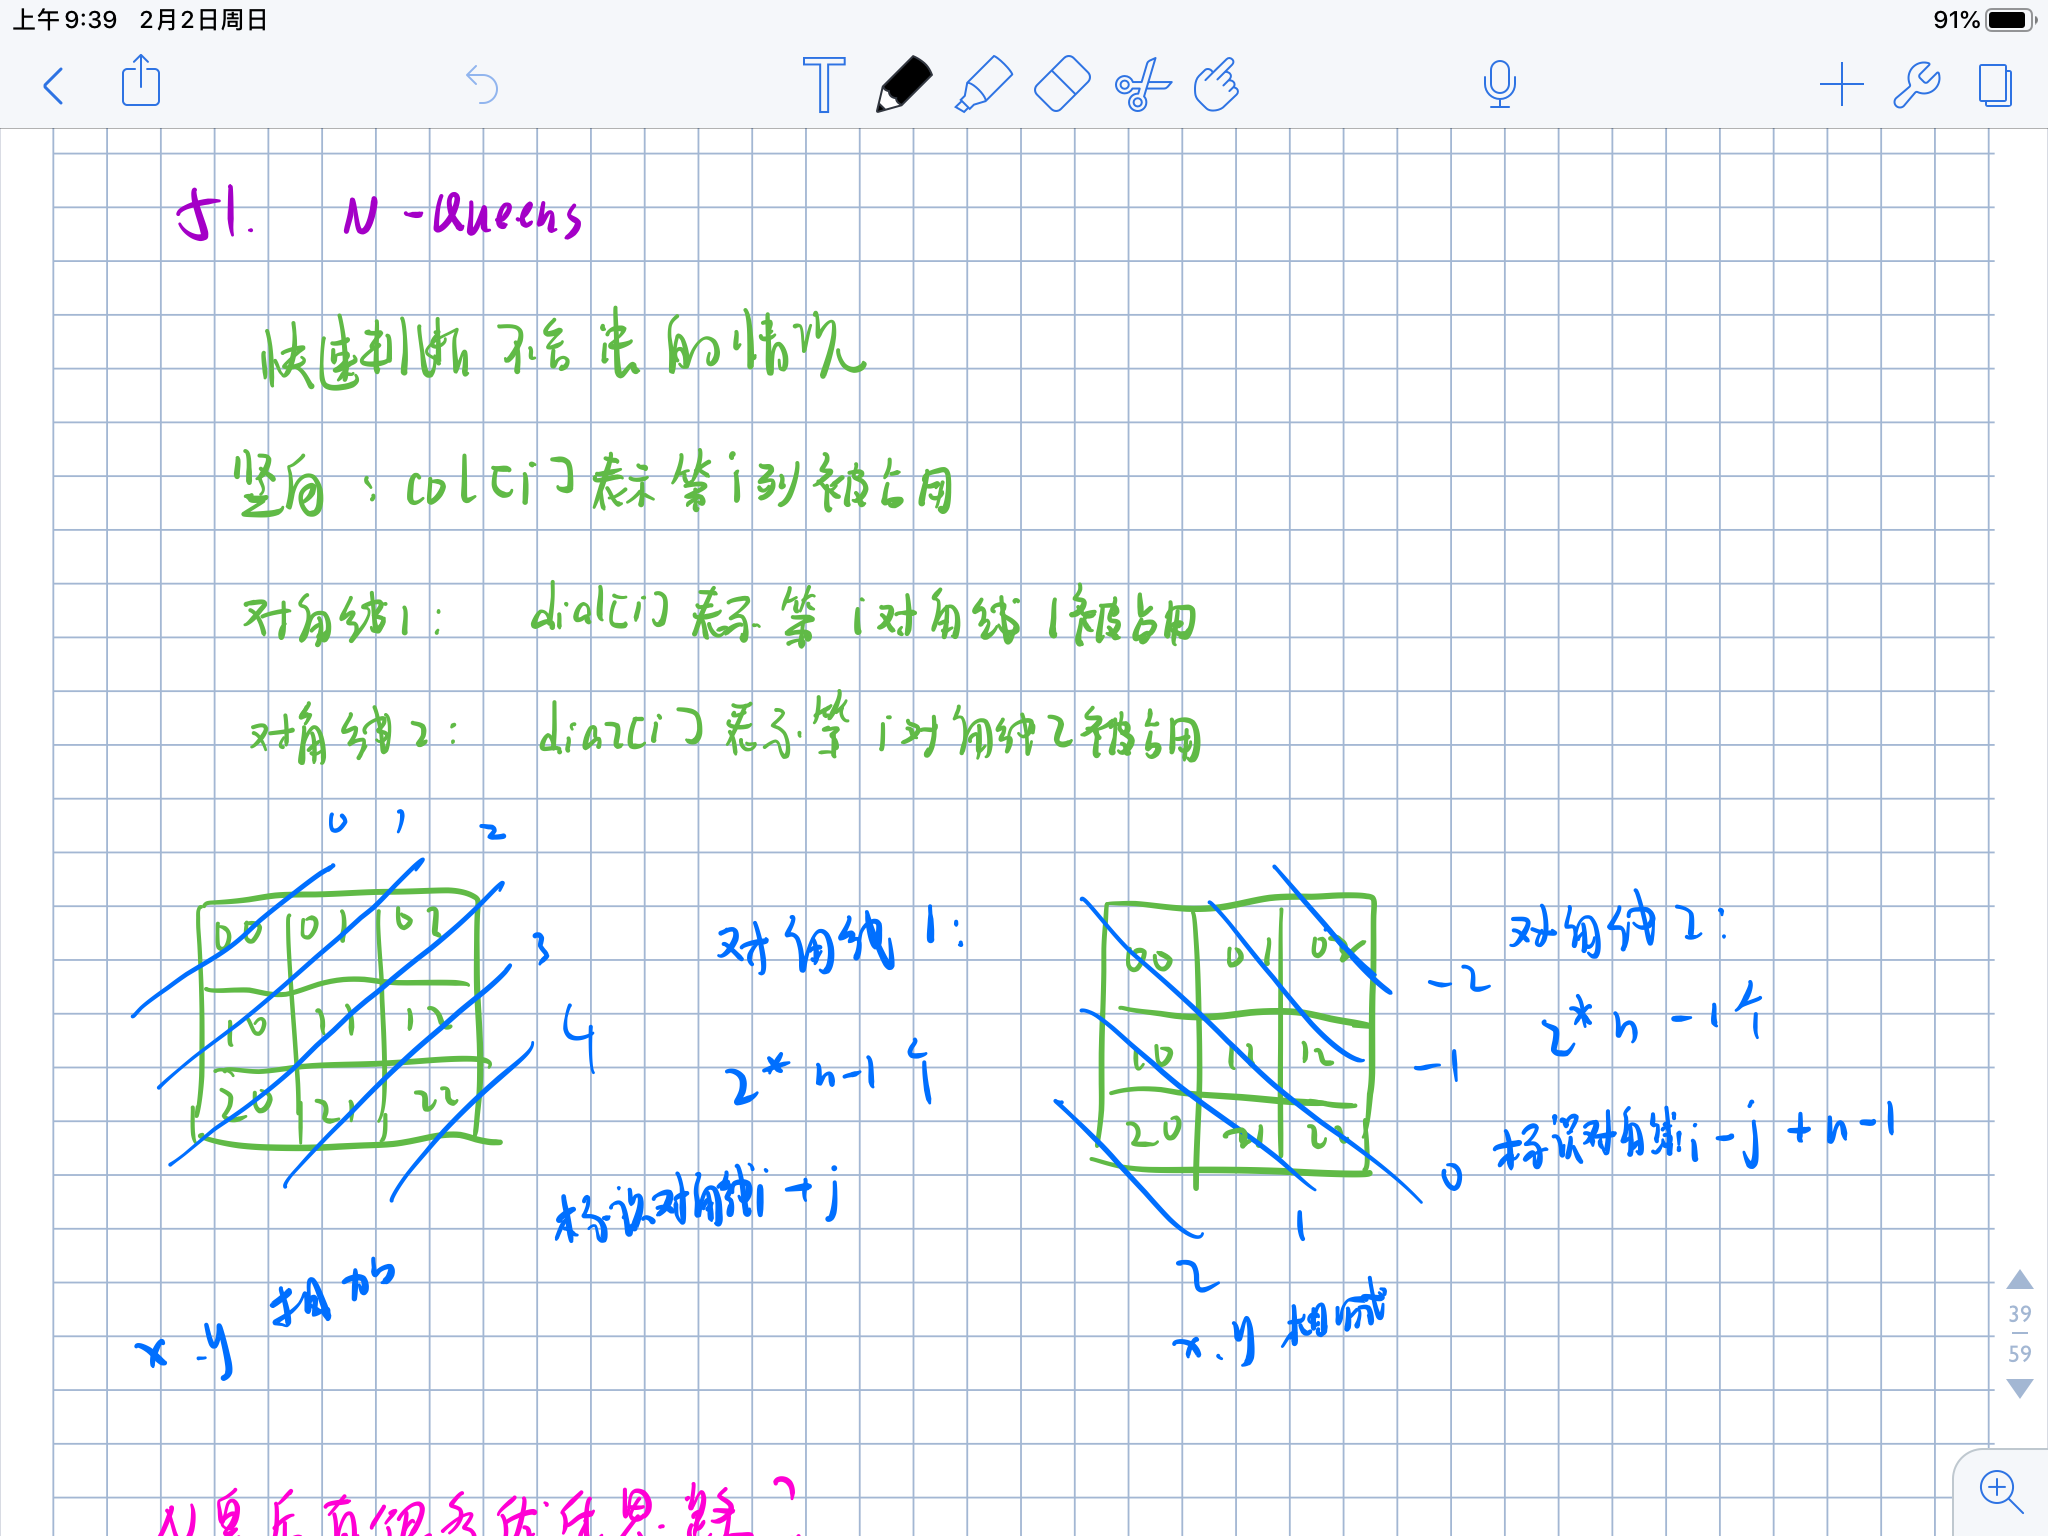 上午9:39 2月2日周日
91%
T
51. N-Queens
快速判断不合法的情况
竖向：col[i]表示第i列被占用
对角线1： dia1[i]表示第i对角线1被占用
对角线2： dia2[i]表示第i对角线2被占用
0 1 2
3
4
00 01 02
10 11 12
20 21 22
对角线1：
2*n-1个
标识对角线i+j
x.y相加
00 01 02
10 11 12
20 21 22
-2
-1
0
1
2
对角线2：
2*n-1个
标识对角线i-j+n-1
x.y相减
39
59
N皇后有很多优化思路？